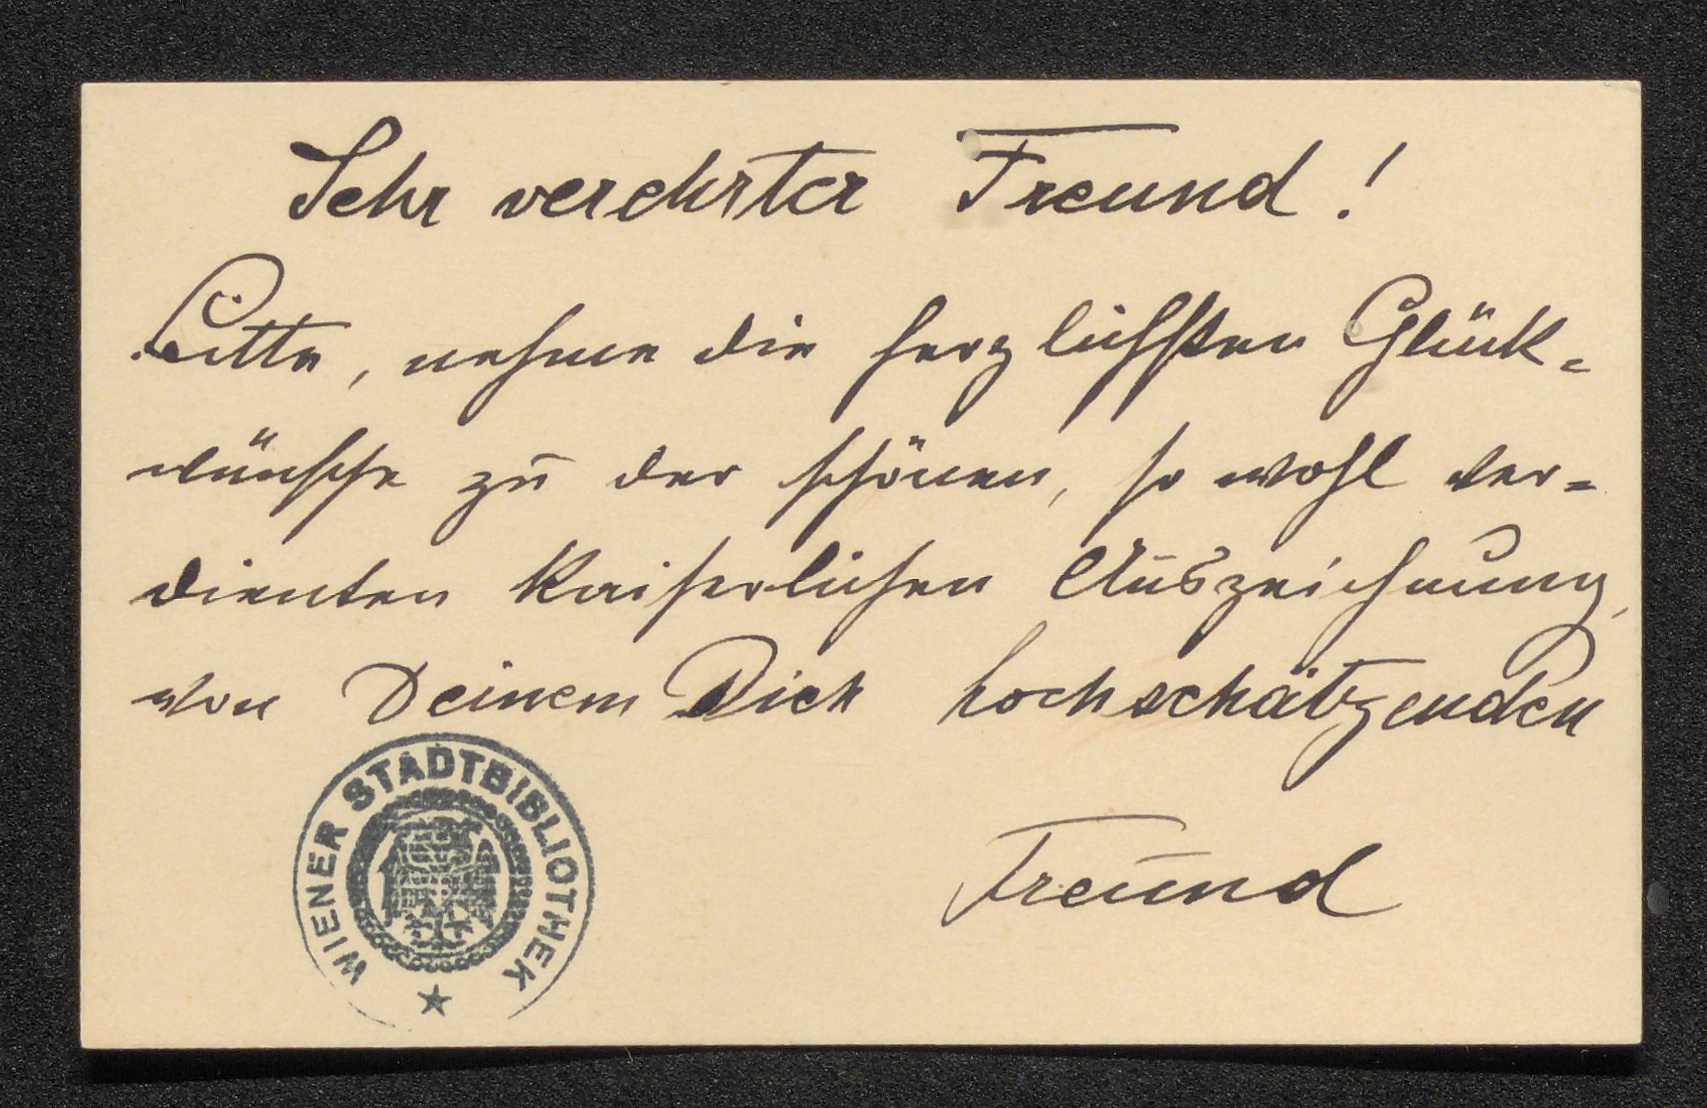 Sehr verehrter Freund!
Bitte, nehme die herzlichsten Glück-
wünsche zu der schönen, so wohl ver-
dienten kaiserlichen Auszeichnung,
von Deinem Dich hochschätzenden
Freund
WIENER STADTBIBLIOTHEK